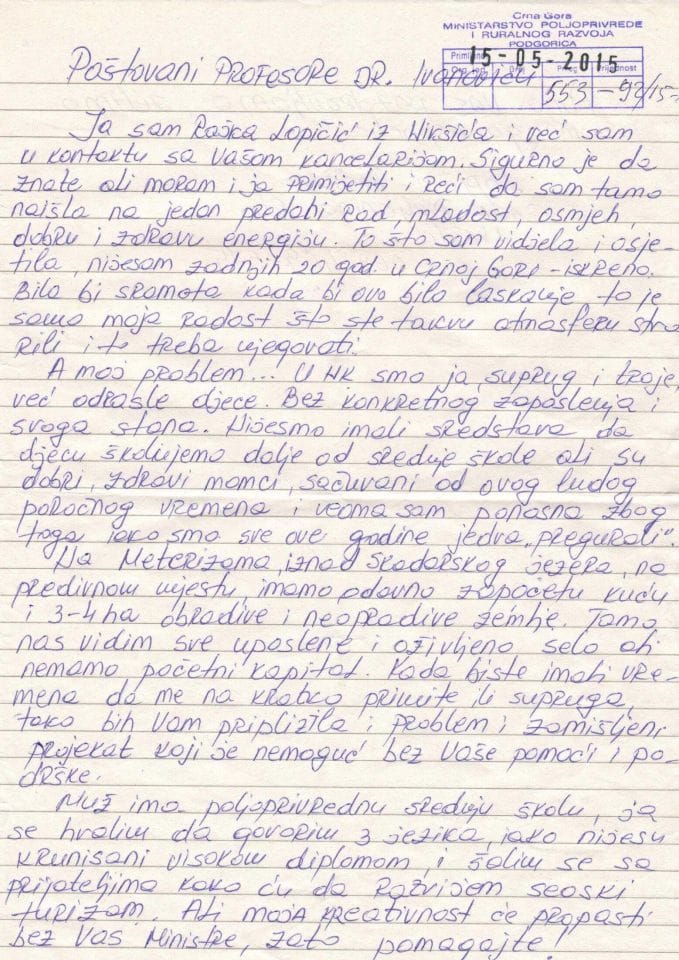 Crna Gora
MINISTARSTVO POLJOPRIVREDE
I RURALNOG RAZVOJA
PODGORICA
15-05-2015
553 - 92/15-
Poštovani PROFESORE DR. Ivanoviću
Ja sam Rajka Lopičić iz Nikšića i već sam
u kontaktu sa Vašom kancelarijom. Sigurno je da
znate ali moram i ja primijetiti i reći da sam tamo
naišla na jedan predahi rad, mladost, osmjeh,
dobru i zdravu energiju. To što sam vidjela i osje-
tila, nijesam zadnjih 20 god. u Crnoj Gori - iskreno.
Bilo bi sramota kada bi ovo bilo laskanje to je
samo moja radost što ste takvu atmosferu stvo
rili i to treba njegovati.
A moj problem... U NK smo ja, suprug i troje,
već odrasle djece. Bez konkretnog zaposlenja i
svoga stana. Nijesmo imali sredstava da
djecu školujemo dalje od srednje škole ali su
dobri, zdravi momci, sačuvani od ovog ludog
poročnog vremena i veoma sam ponosna zbog
toga iako smo sve ove godine jedva "pregurali".
Na Meterizama, iznad Skadarskog jezera, na
predivnom mjestu, imamo odavno započetu kuću
i 3-4 ha obradive i neopradive zemlje. Tamo
nas vidim sve uposlene i oživljeno selo ali
nemamo početni kapital. Kada biste imali vre-
mena da me na kratko primite ili supruga,
tako bih Vam priplizila i problem i zamišljeni
projekat koji je nemoguć bez Vaše pomoći i po-
drške.
Muž ima poljoprivrednu srednju školu, ja
se hvalim da govorim 3 jezika, iako nijesu
krunisani visokom diplomom, i šalim se sa
prijateljima kako ću da razvijem seoski
turizam. Ali moja kreativnost će propasti
bez Vas Ministre, zato pomagajte!